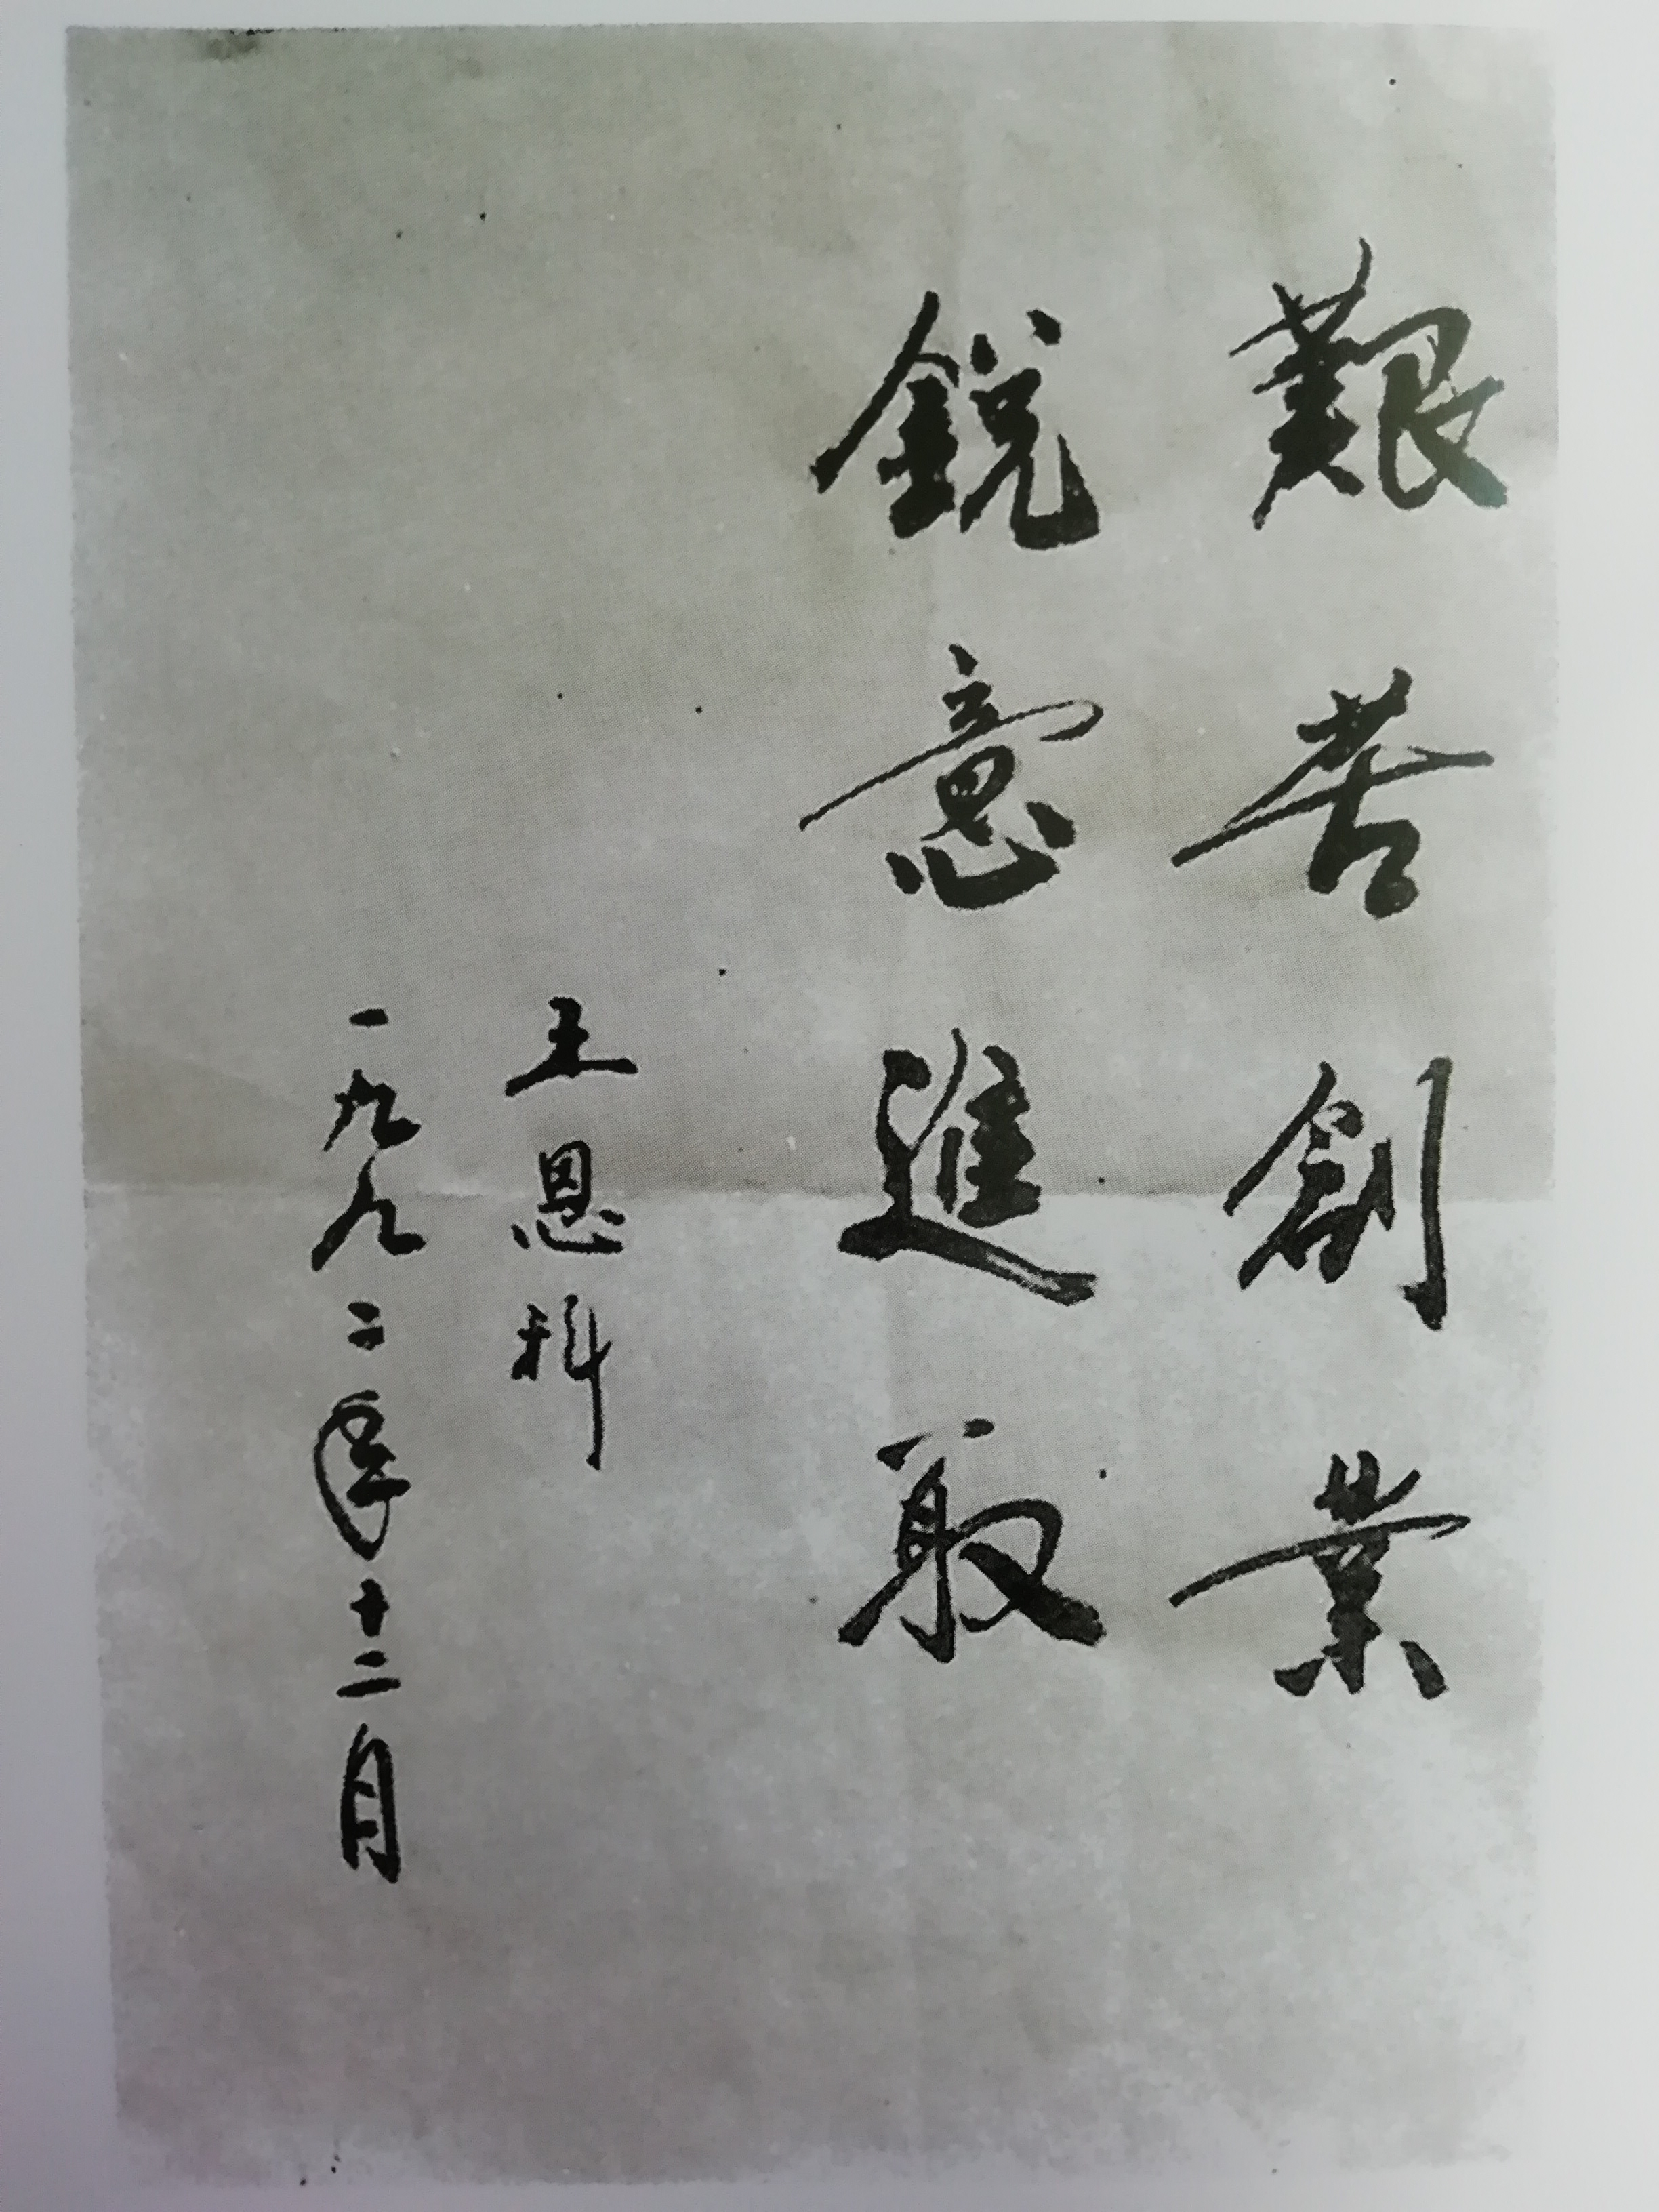 艱苦創業
銳意進取
王恩科
一九九二年十二月